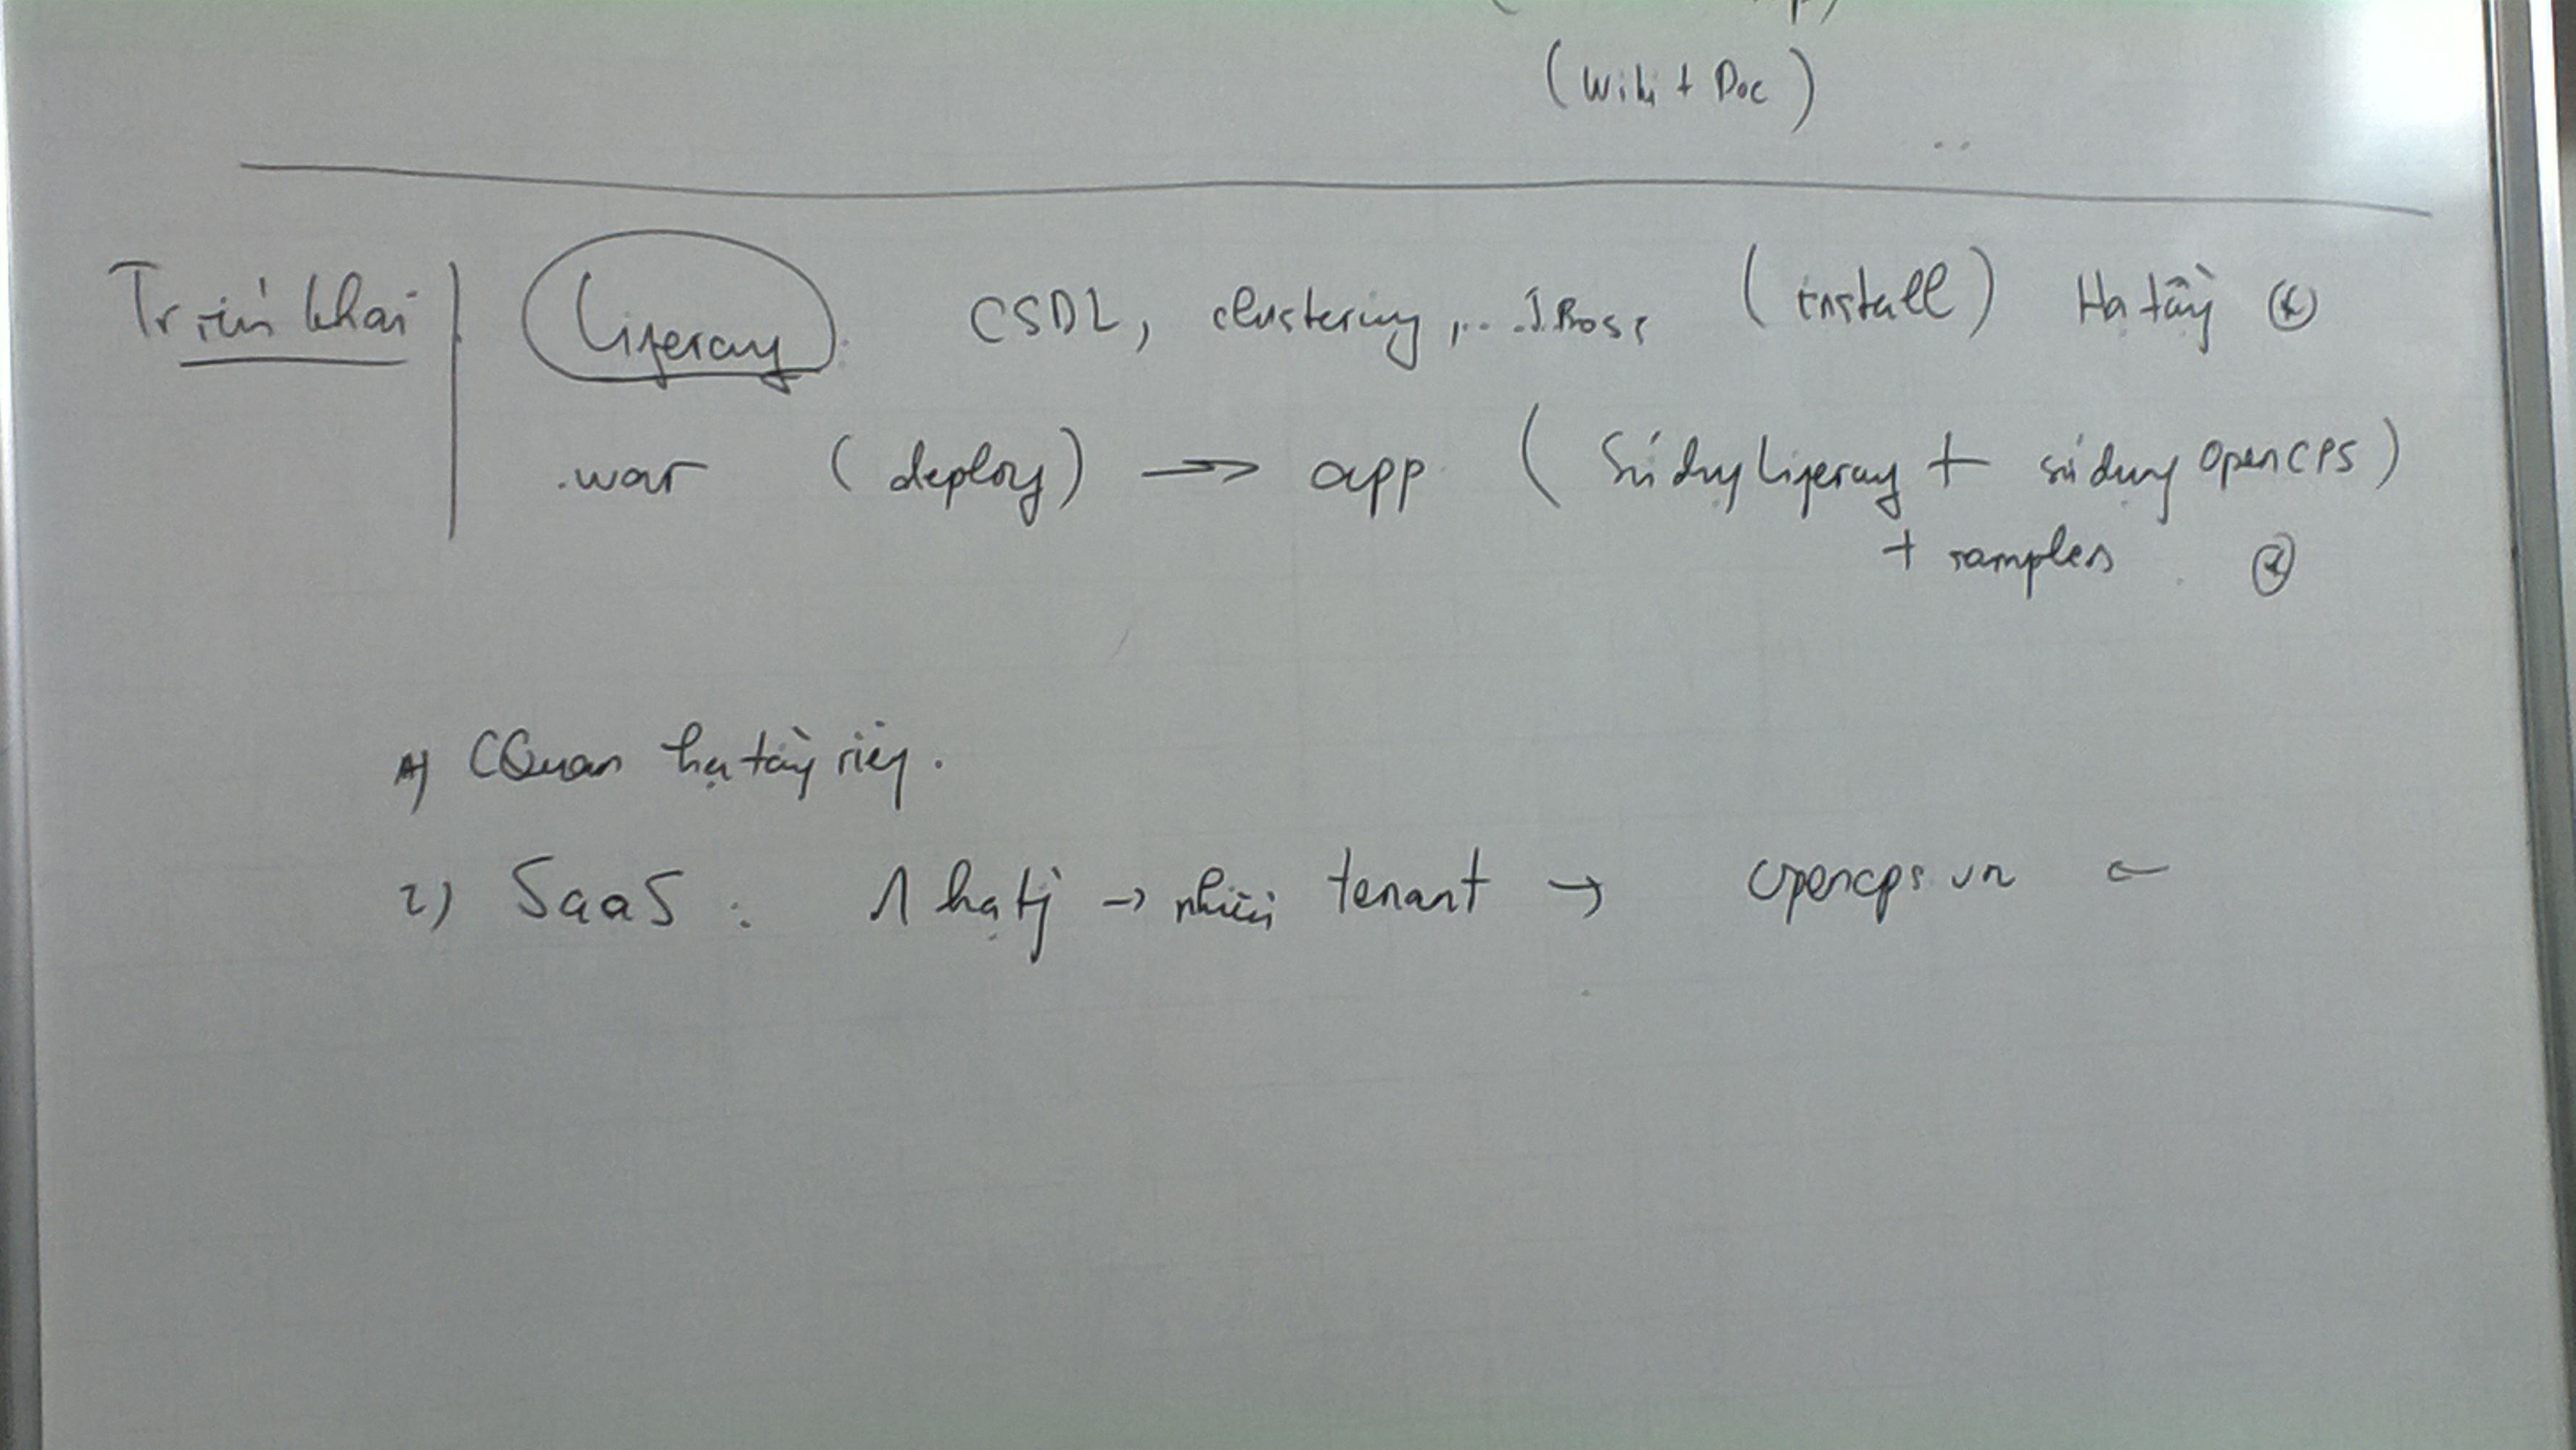 (Wiki + Doc)
Triển khai Liferay : CSDL, clustering, ... JBoss (install) Hạ tầng
.war (deploy) → app (Sử dụng Liferay + sử dụng OpenCPS)
+ samples
1) CQuan hạ tầng riêng.
2) SaaS : 1 hạ tầng → nhiều tenant → opencps.vn ←